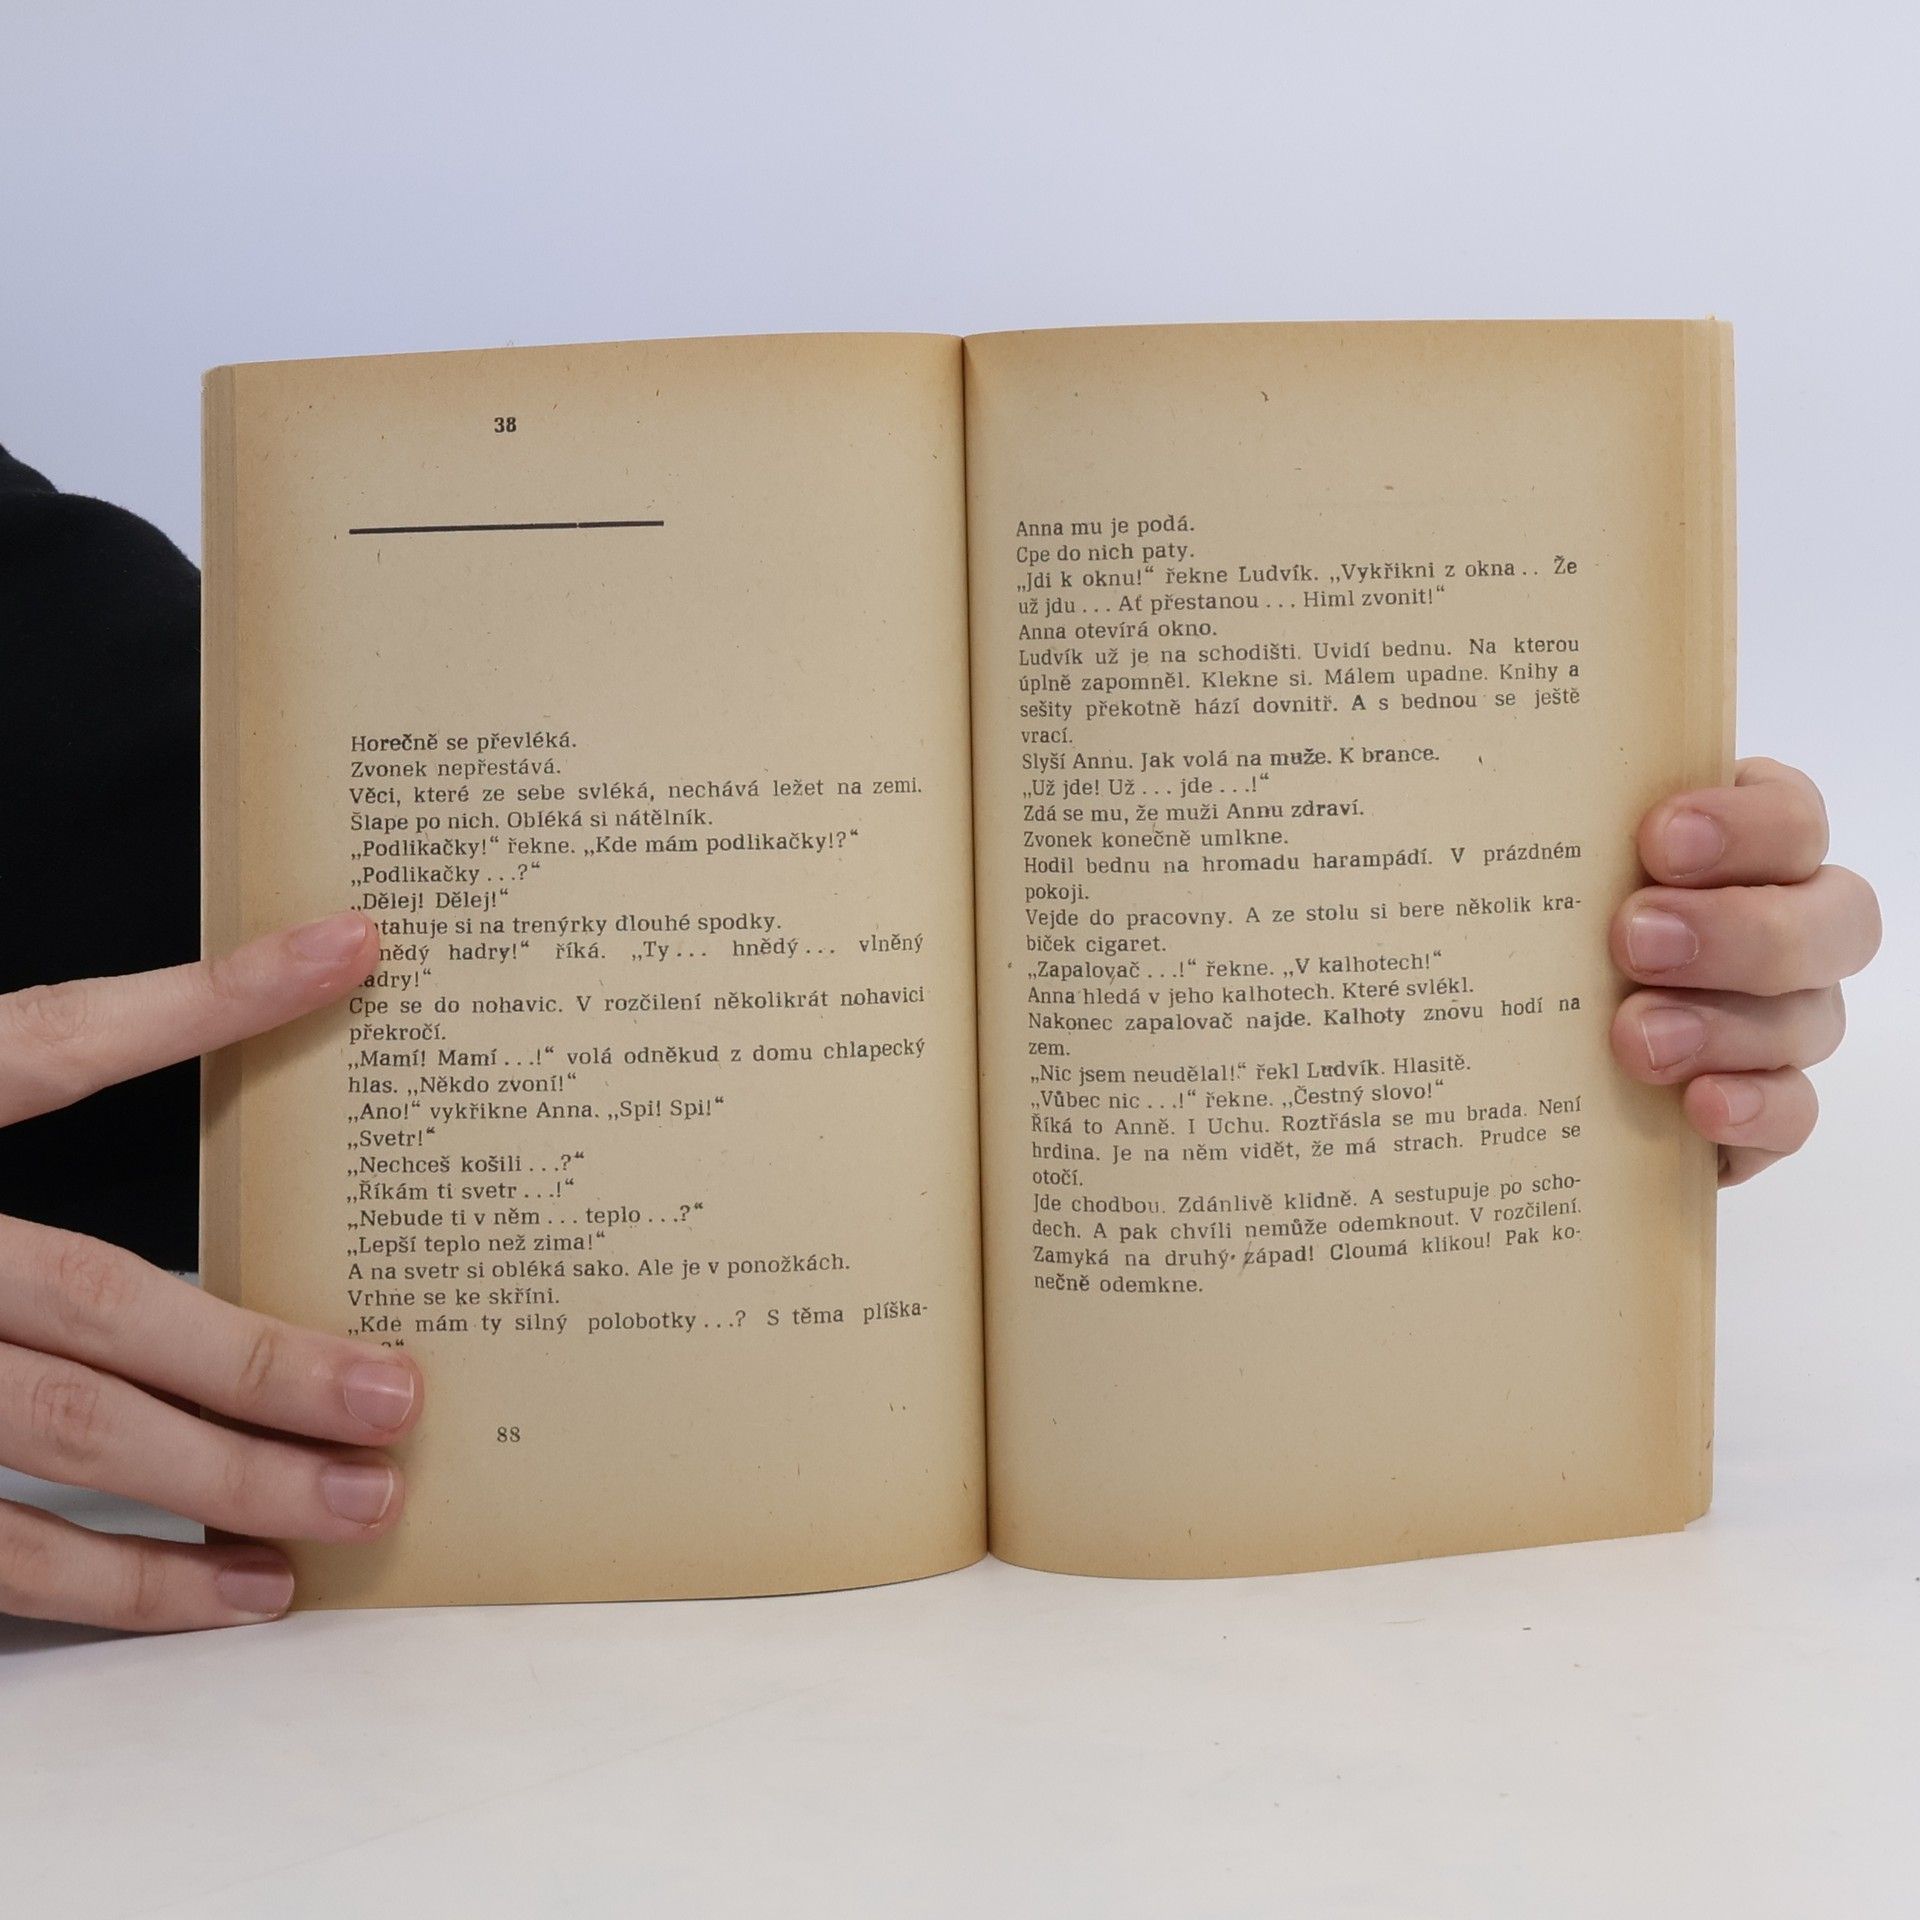 38
Horečně se převléká.
Zvonek nepřestává.
Věci, které ze sebe svléká, nechává ležet na zemi.
Šlape po nich. Obléká si nátělník.
„Podlikačky!“ řekne. „Kde mám podlikačky!?“
„Podlikačky . . .?“
„Dělej! Dělej!“
si na trenýrky dlouhé spodky.
hadry!“ říká. „Ty . . . hnědý . . . vlněný
Cpe se do nohavic. V rozčilení několikrát nohavici
překročí.
„Mamí! Mamí . . .!“ volá odněkud z domu chlapecký
hlas. „Někdo zvoní!“
„Ano!“ vykřikne Anna. „Spi! Spi!“
„Svetr!“
„Nechceš košili . . .?“
„Říkám ti svetr . . .!“
„Nebude ti v něm . . . teplo . . .?“
„Lepší teplo než zima!“
A na svetr si obléká sako. Ale je v ponožkách.
Vrhne se ke skříni.
„Kde mám ty silný polobotky . . .? S těma plíška-
88
Anna mu je podá.
Cpe do nich paty.
„Jdi k oknu!“ řekne Ludvík. „Vykřikni z okna . . Že
už jdu . . . Ať přestanou . . . Himl zvonit!“
Anna otevírá okno.
Ludvík už je na schodišti. Uvidí bednu. Na kterou
úplně zapomněl. Klekne si. Málem upadne. Knihy a
sešity překotně hází dovnitř. A s bednou se ještě
vrací.
Slyší Annu. Jak volá na muže. K brance.
„Už jde! Už . . . jde . . .!“
Zdá se mu, že muži Annu zdraví.
Zvonek konečně umlkne.
Hodil bednu na hromadu harampádí. V prázdném
pokoji.
Vejde do pracovny. A ze stolu si bere několik kra-
biček cigaret.
„Zapalovač . . .!“ řekne. „V kalhotech!“
Anna hledá v jeho kalhotech. Které svlékl.
Nakonec zapalovač najde. Kalhoty znovu hodí na
zem.
„Nic jsem neudělal!“ řekl Ludvík. Hlasitě.
„Vůbec nic . . .!“ řekne. „Čestný slovo!“
Říká to Anně. I Uchu. Roztřásla se mu brada. Není
hrdina. Je na něm vidět, že má strach. Prudce se
otočí.
Jde chodbou. Zdánlivě klidně. A sestupuje po scho-
dech. A pak chvíli nemůže odemknout. V rozčilení.
Zamyká na druhý západ! Cloumá klikou! Pak ko-
nečně odemkne.